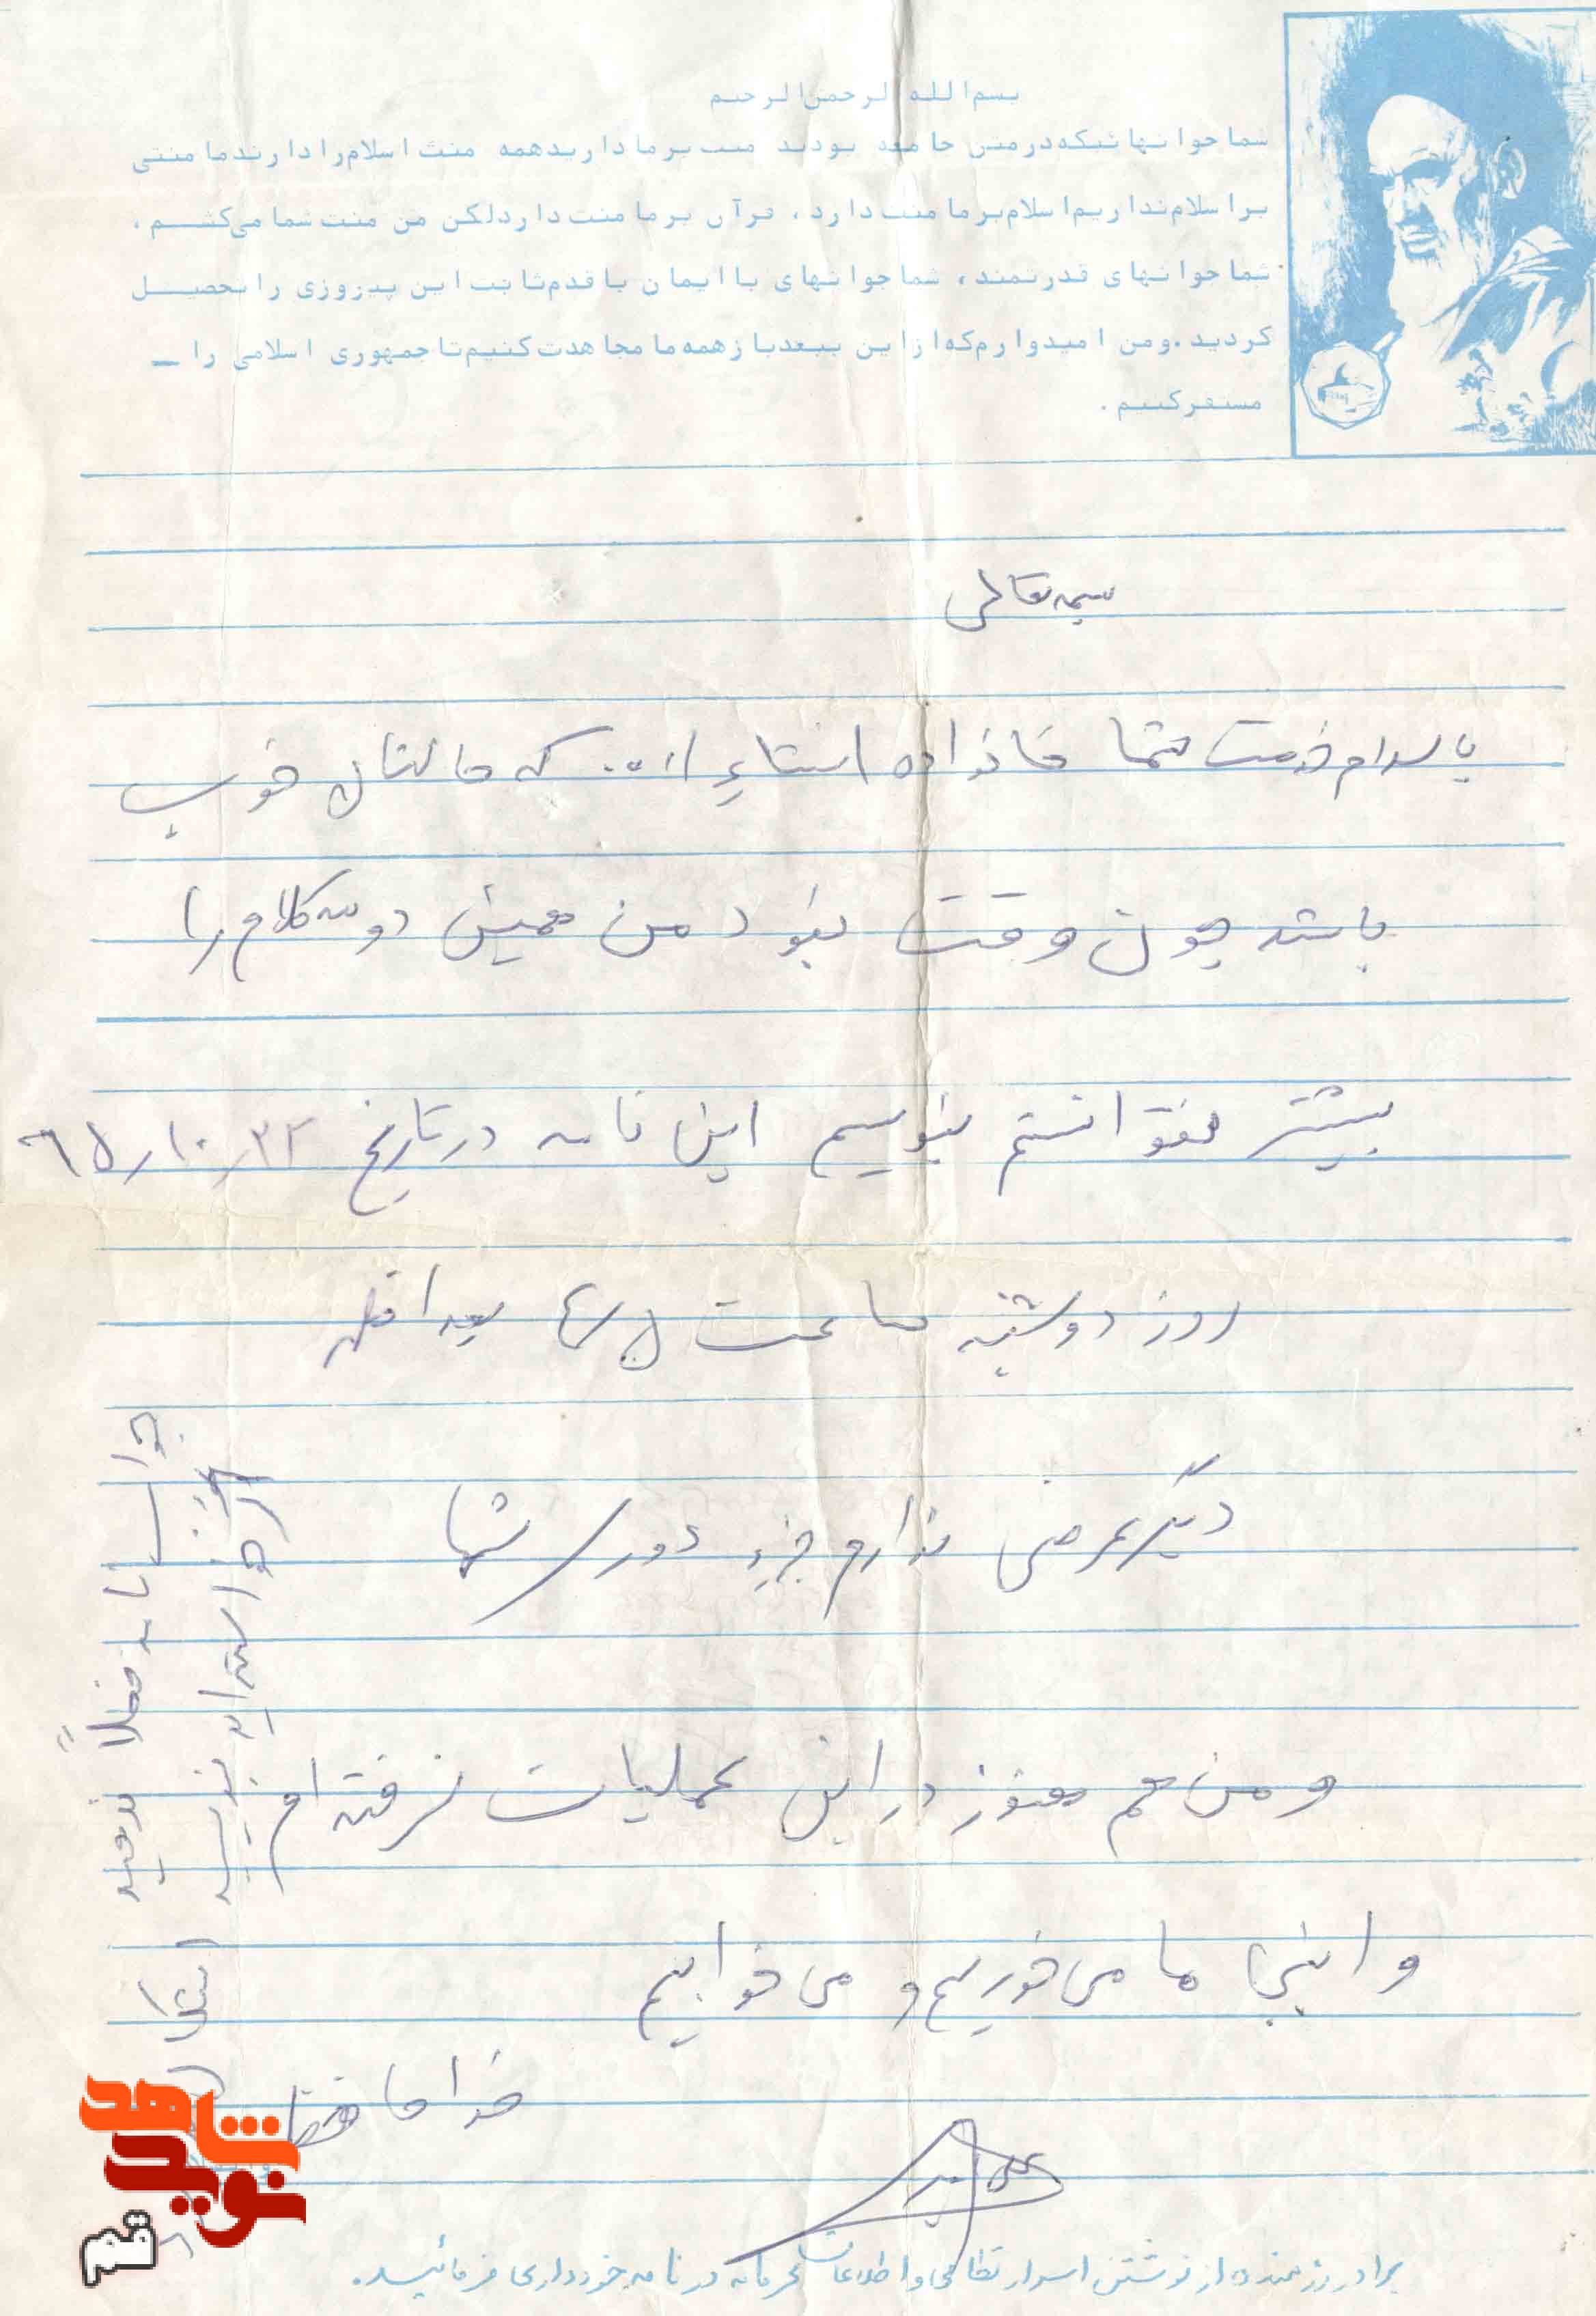 بسم الله الرحمن الرحیم
شما جوانهائیکه در متن جامعه بودید منت بر ما دارید همه منت اسلام را دارند ما منتی
بر اسلام نداریم اسلام بر ما منت دارد ، قرآن بر ما منت دارد لکن من منت شما می‌کشم .
شما جوانهای قدرتمند ، شما جوانهای با ایمان با قدم ثابت این پیروزی را تحصیل
کردید . و من امیدوارم که از این ببعد باز همه ما مجاهدت کنیم تا جمهوری اسلامی را ـ
مستقر کنیم .
بسمه تعالی
با سلام خدمت شما خانواده انشاءِ ا... که حالتان خوب
باشد چون وقت نبود من همین دو سه کلام را
بیشتر نتوانستم بنویسم این نامه در تاریخ ۶۵/۱۰/۲۲
روز دوشنبه ساعت بعداظهر
دیگر عرضی ندارم جزء دوری شما
و من هم هنوز در این عملیات نرفته ام
و اینجا ما می خوریم و می خوابیم
خداحافظ
جواب نامه فعلاً ندهید
اگر خواسته اید بنویسید
برادر رزمنده از نوشتن اسرار نظامی و اطلاعات محرمانه در نامه خودداری فرمائید.
شاهد
نوید
قم